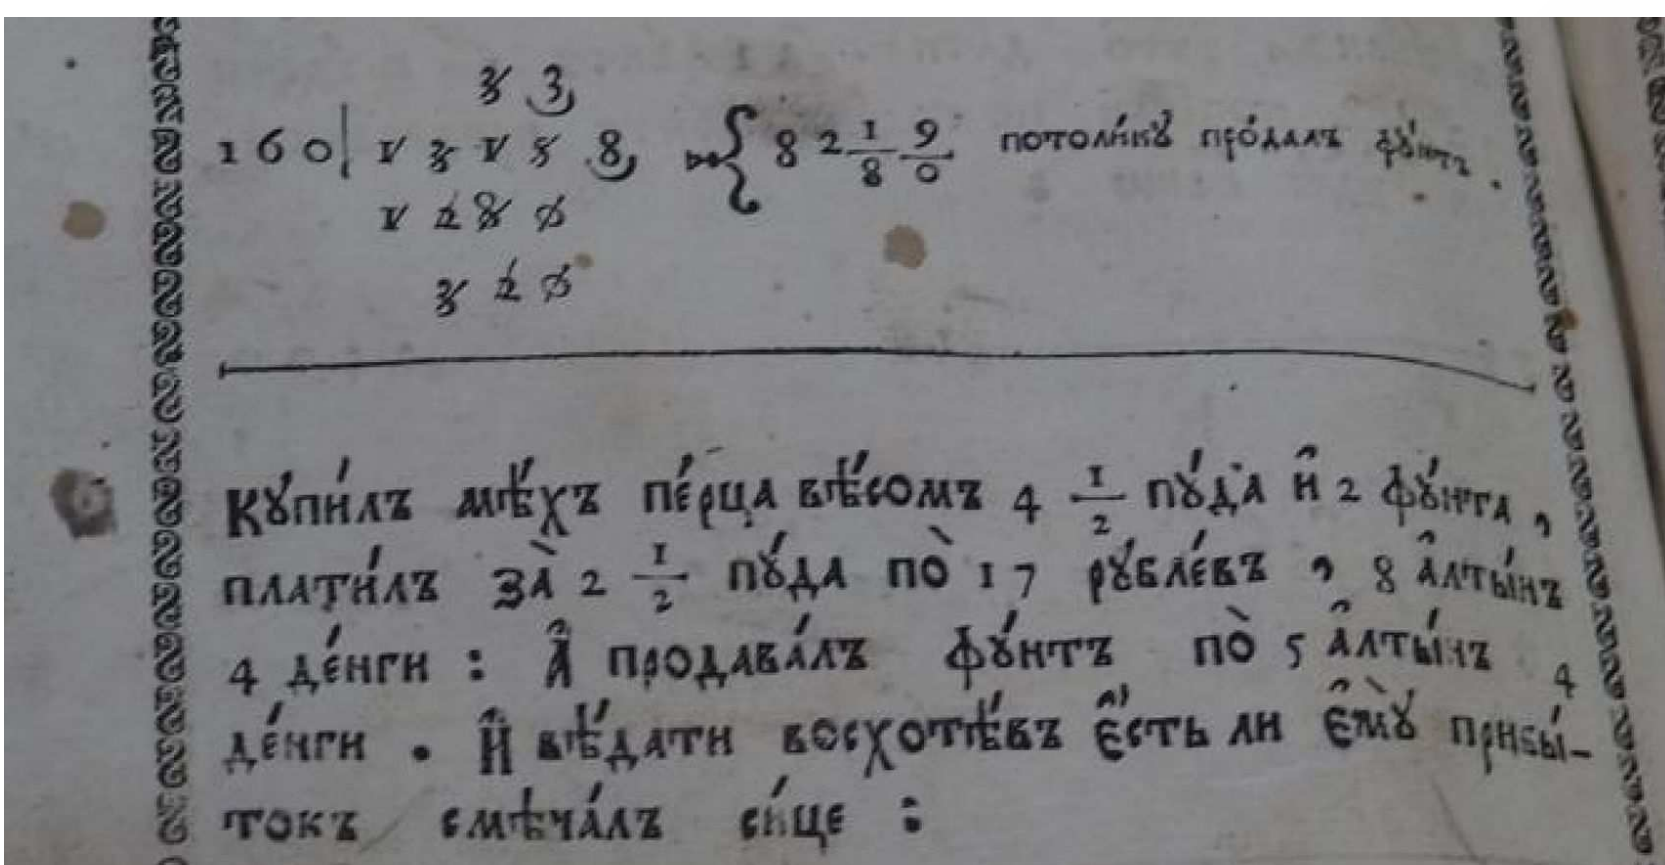 3 3
160| 1 3 1 5 8 { 82 1/8 9/0 потоли́кꙋ про́далъ фꙋ́нтъ .
1 2 8 0
3 2 0
Кꙋпи́лъ мѣ́хъ пе́рца вѣ́сомъ 4 1/2 пꙋ́да и҆ 2 фꙋ́нта ,
плати́лъ за̀ 2 1/2 пꙋ́да по̀ 17 рꙋбле́въ , 8 а҆лты́нъ
4 де́нги : А҆ продава́лъ фꙋ́нтъ по̀ 5 а҆лты́нъ 4
де́нги . И҆ вѣ́дати восхотѣ́въ є҆́сть ли є҆мꙋ̀ прибы́-
токъ смѣча́лъ си́це :